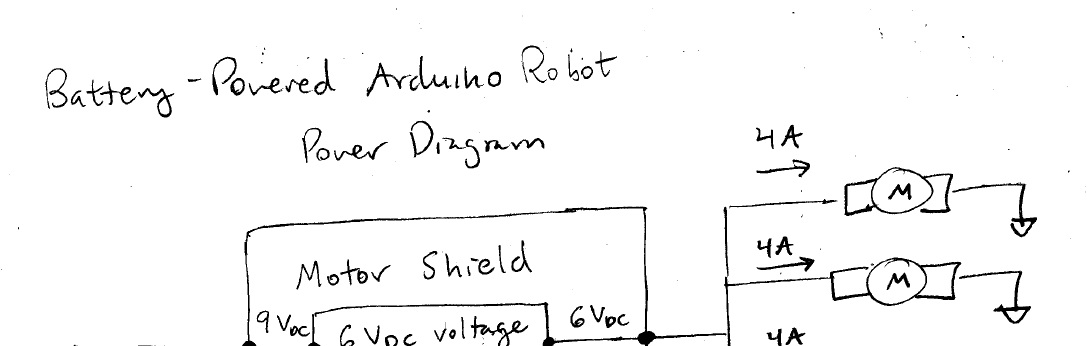 Battery-Powered Arduino Robot
Power Diagram
4A
M
4A
M
Motor Shield
9 VDC
6 VDC voltage
6 VDC
4A